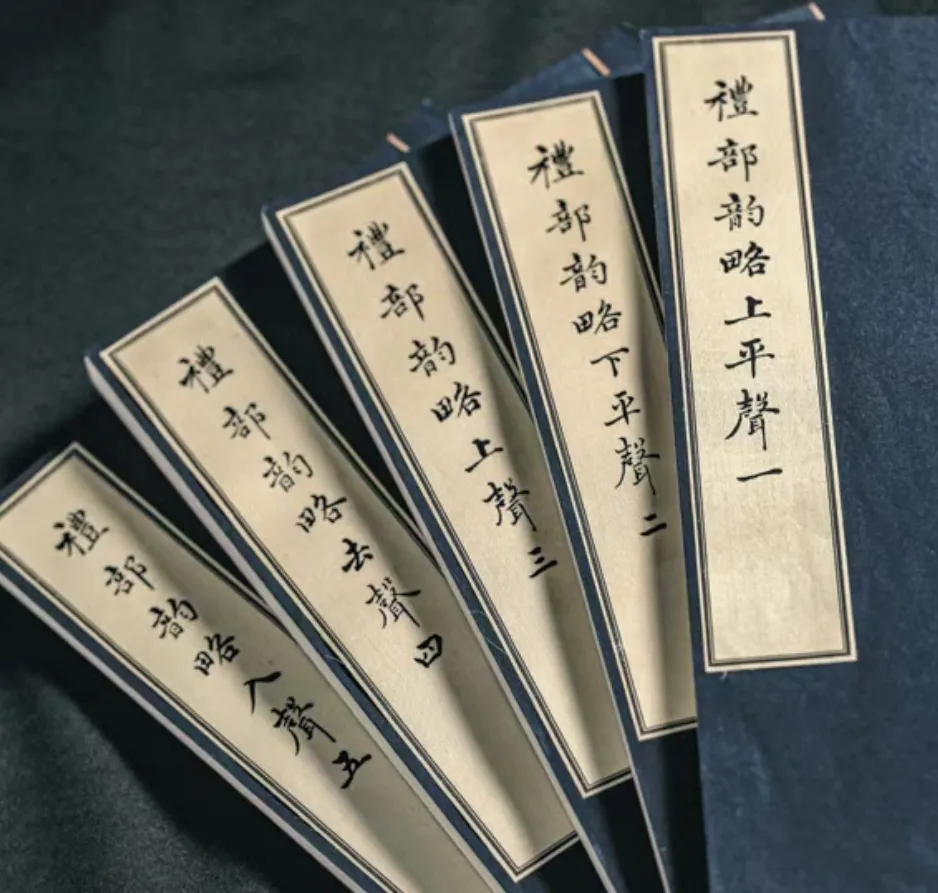 禮部韵略上平聲一
禮部韵略下平聲二
禮部韵略上聲三
禮部韵略去聲四
禮部韵略入聲五